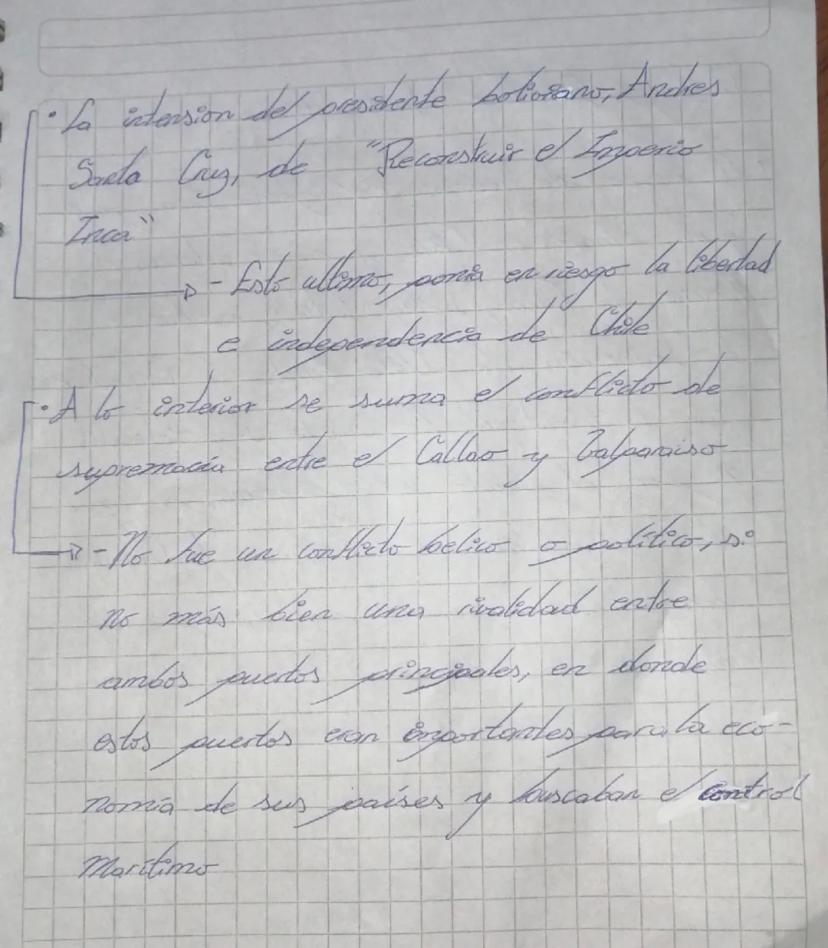 · La intension del presidente boliviano, Andres
Santa Cruz, de "Reconstruir el Imperio
Inca"
- Esto ultimo, ponia en riesgo la libertad
e independencia de Chile
· A lo interior se suma el conflicto de
supremacia entre el Callao y Valparaiso
- No fue un conflicto belico o político, si
no más bien una rivalidad entre
ambos puertos principales, en donde
estos puertos eran importantes para la eco-
nomia de sus países y buscaban el control
Maritimo